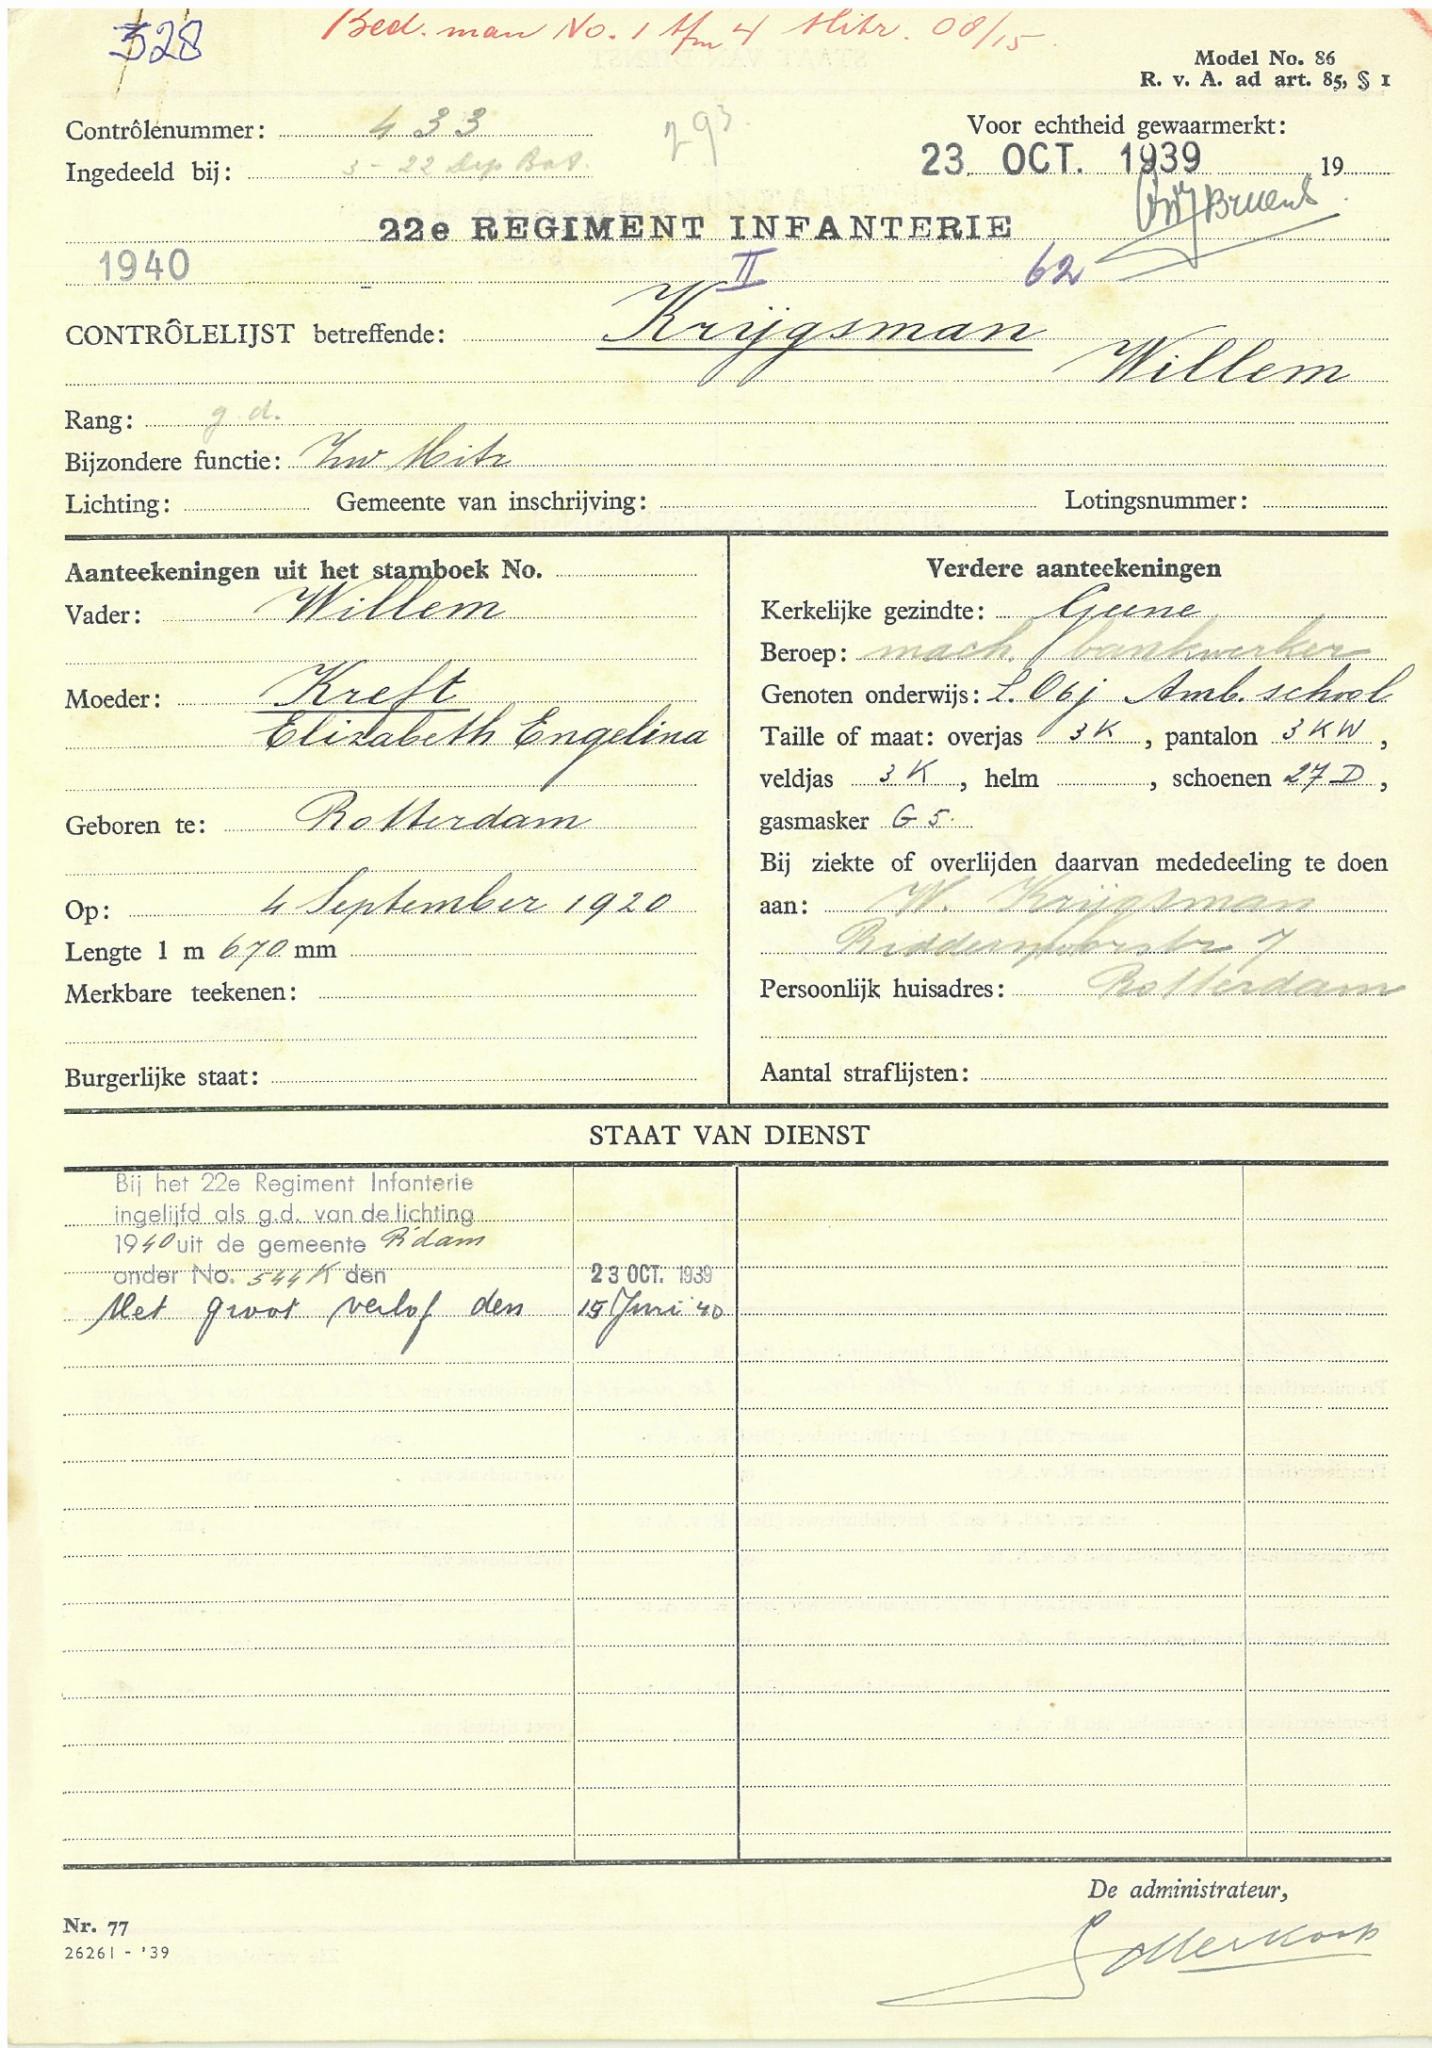 328
Bed. man No. 1 t/m 4 Mitr. 08/15
Model No. 86
R. v. A. ad art. 85, § 1
Contrôlenummer: 433
293
Voor echtheid gewaarmerkt:
Ingedeeld bij: 3-22 Dep Bat.
23 OCT. 1939 19
22e REGIMENT INFANTERIE
1940
II 62
CONTRÔLELIJST betreffende: Krijgsman
Willem
Rang: g.d.
Bijzondere functie: Zw Mitr
Lichting: Gemeente van inschrijving: Lotingsnummer:
Aanteekeningen uit het stamboek No.
Vader: Willem
Moeder: Kreft
Elizabeth Engelina
Geboren te: Rotterdam
Op: 4 September 1920
Lengte 1 m 670 mm
Merkbare teekenen:
Burgerlijke staat:
Verdere aanteekeningen
Kerkelijke gezindte: Geene
Beroep: mach. bankwerker
Genoten onderwijs: L.O 6j Amb. school
Taille of maat: overjas 3K, pantalon 3KW,
veldjas 3K, helm , schoenen 27D,
gasmasker G5.
Bij ziekte of overlijden daarvan mededeeling te doen
aan: W. Krijgsman
7
Persoonlijk huisadres: Rotterdam
Aantal straflijsten:
STAAT VAN DIENST
Bij het 22e Regiment Infanterie
ingelijfd als g.d. van de lichting
1940 uit de gemeente R'dam
onder No. 544K den 23 OCT. 1939
Met groot verlof den 15 Juni '40
De administrateur,
Nr. 77
26261 - '39